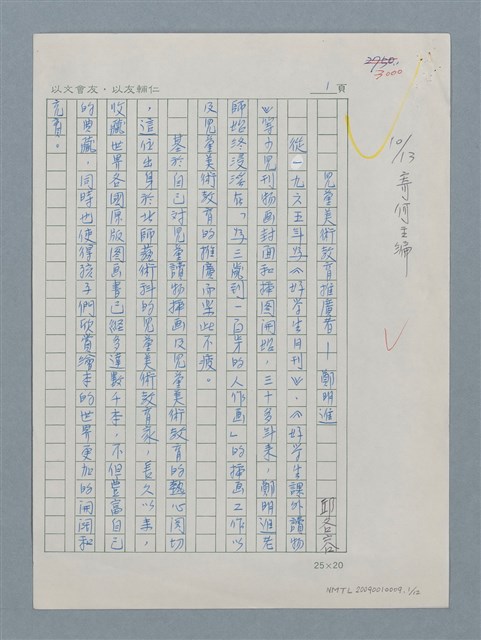 2950
3000
以文會友，以友輔仁
1頁
10/13 寄何主編
兒童美術教育推廣者—鄭明進
邱各容
從一九六五年為《好學生月刊》，《好學生課外讀物
》等少兒刊物畫封面和插圖開始，三十多年來，鄭明進老
師始終浸淫在「為三歲到一百歲的人作画」的插畫工作以
及兒童美術教育的推廣而樂此不疲。
基於自己對兒童讀物插画及兒童美術教育的熱心関切
，這位出身於北師藝術科的兒童美術教育家，長久以来，
收藏世界各國原版圖画書已經多達數千本，不但豐富自己
的典藏，同時也使得孩子們欣賞繪本的世界更加的開闊和
充實。
25×20
NMTL 20090010009. 1/12